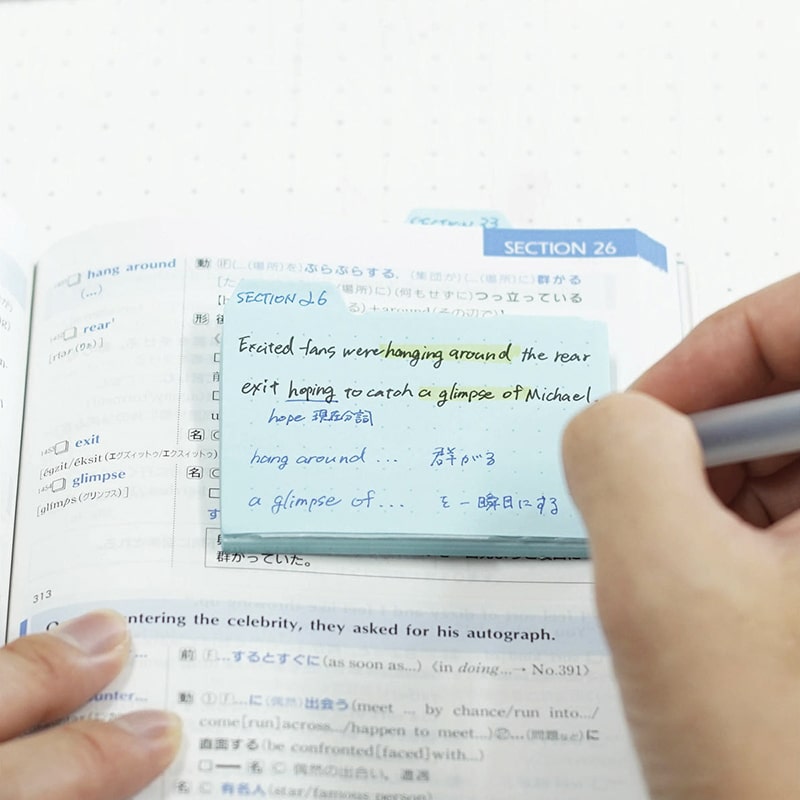 SECTION 23
SECTION 26
hang around
(...)
動 (...(場所)を)ぶらぶらする, (集団が)(...(場所)に)群がる
(場所)に)(何もせずに)つっ立っている
rear
形
SECTION 26
Excited fans were hanging around the rear
exit hoping to catch a glimpse of Michael.
hope 現在分詞
hang around ... 群がる
a glimpse of ... を一瞬目にする
exit
名
[égzit/éksit(エグズィットゥ/エクスィットゥ)
glimpse
名
[glímps(グリンプス)]
群がっていた。
313
ntering the celebrity, they asked for his autograph.
前 ...するとすぐに(as soon as...)〈in doing...→ No.391〉
unter...
動 ...に(偶然)出会う(meet ... by chance/run into.../
come[run]across.../happen to meet...)②...(問題など)に
直面する(be confronted[faced]with...)
名 C 偶然の出会い, 遭遇
名 C 有名人(star/famous person)